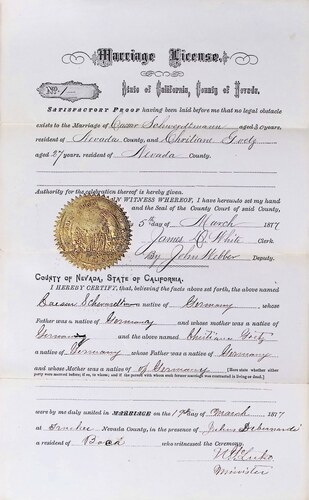 Marriage License.
No. 1
State of California, County of Nevada.
SATISFACTORY PROOF having been laid before me that no legal obstacle
exists to the Marriage of Caesar Schwerdtmann aged 30 years,
resident of Nevada County, and Christiane Goetz
aged 27 years, resident of Nevada County.
Authority for the celebration thereof is hereby given.
IN WITNESS WHEREOF, I have hereunto set my hand
and the Seal of the County Court of said County,
5th day of March 1877
James D. White Clerk
By John Webber Deputy.
COUNTY OF NEVADA, STATE OF CALIFORNIA.
I HEREBY CERTIFY, that, believing the facts above set forth, the above named
a native of Germany, whose
Father was a native of Germany and whose mother was a native
of Germany and the above named Christiana Goetz
a native of Germany whose Father was a native of Germany
and whose Mother was a native of Germany [Here state whether either
party were married before; if so, to whom; and if the person with whom such former marriage was contracted is living or dead.]
were by me duly united in MARRIAGE on the day of March 1877
at Truckee Nevada County, in the presence of Julius
a resident of Boca who witnessed the Ceremony.
Minister